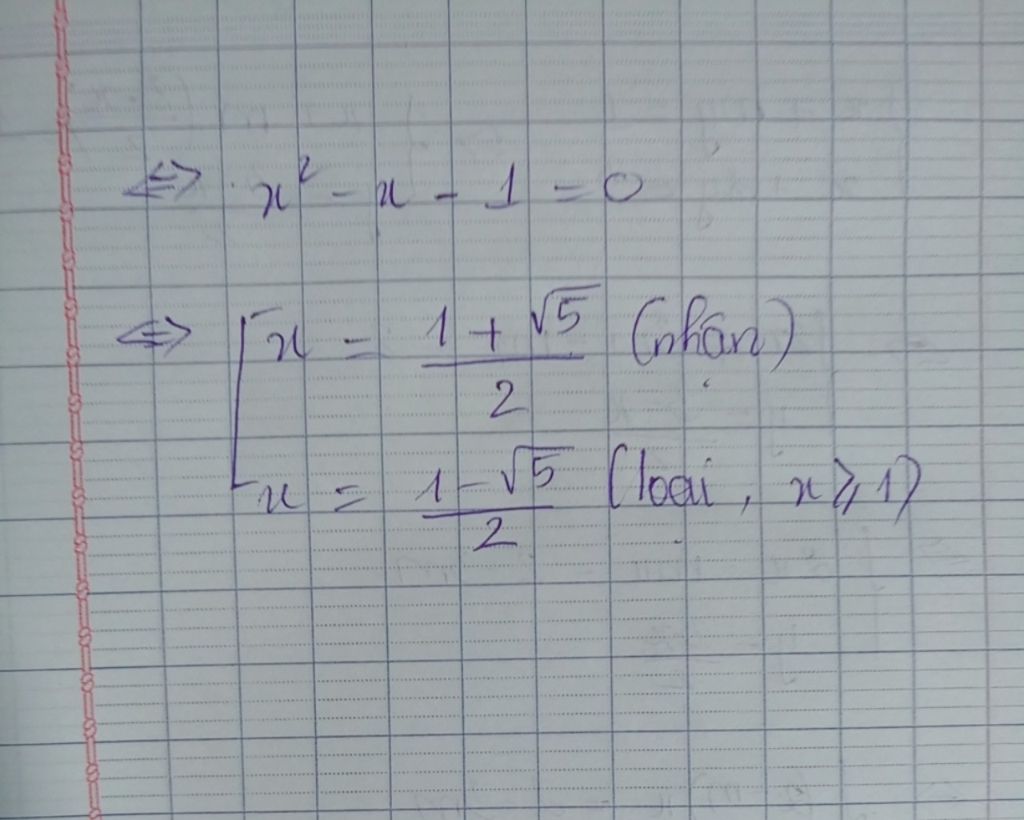 ⇔ x² - x - 1 = 0
⇔ [ x = (1 + √5)/2 (nhận)
x = (1 - √5)/2 (loại, x ⩾ 1)